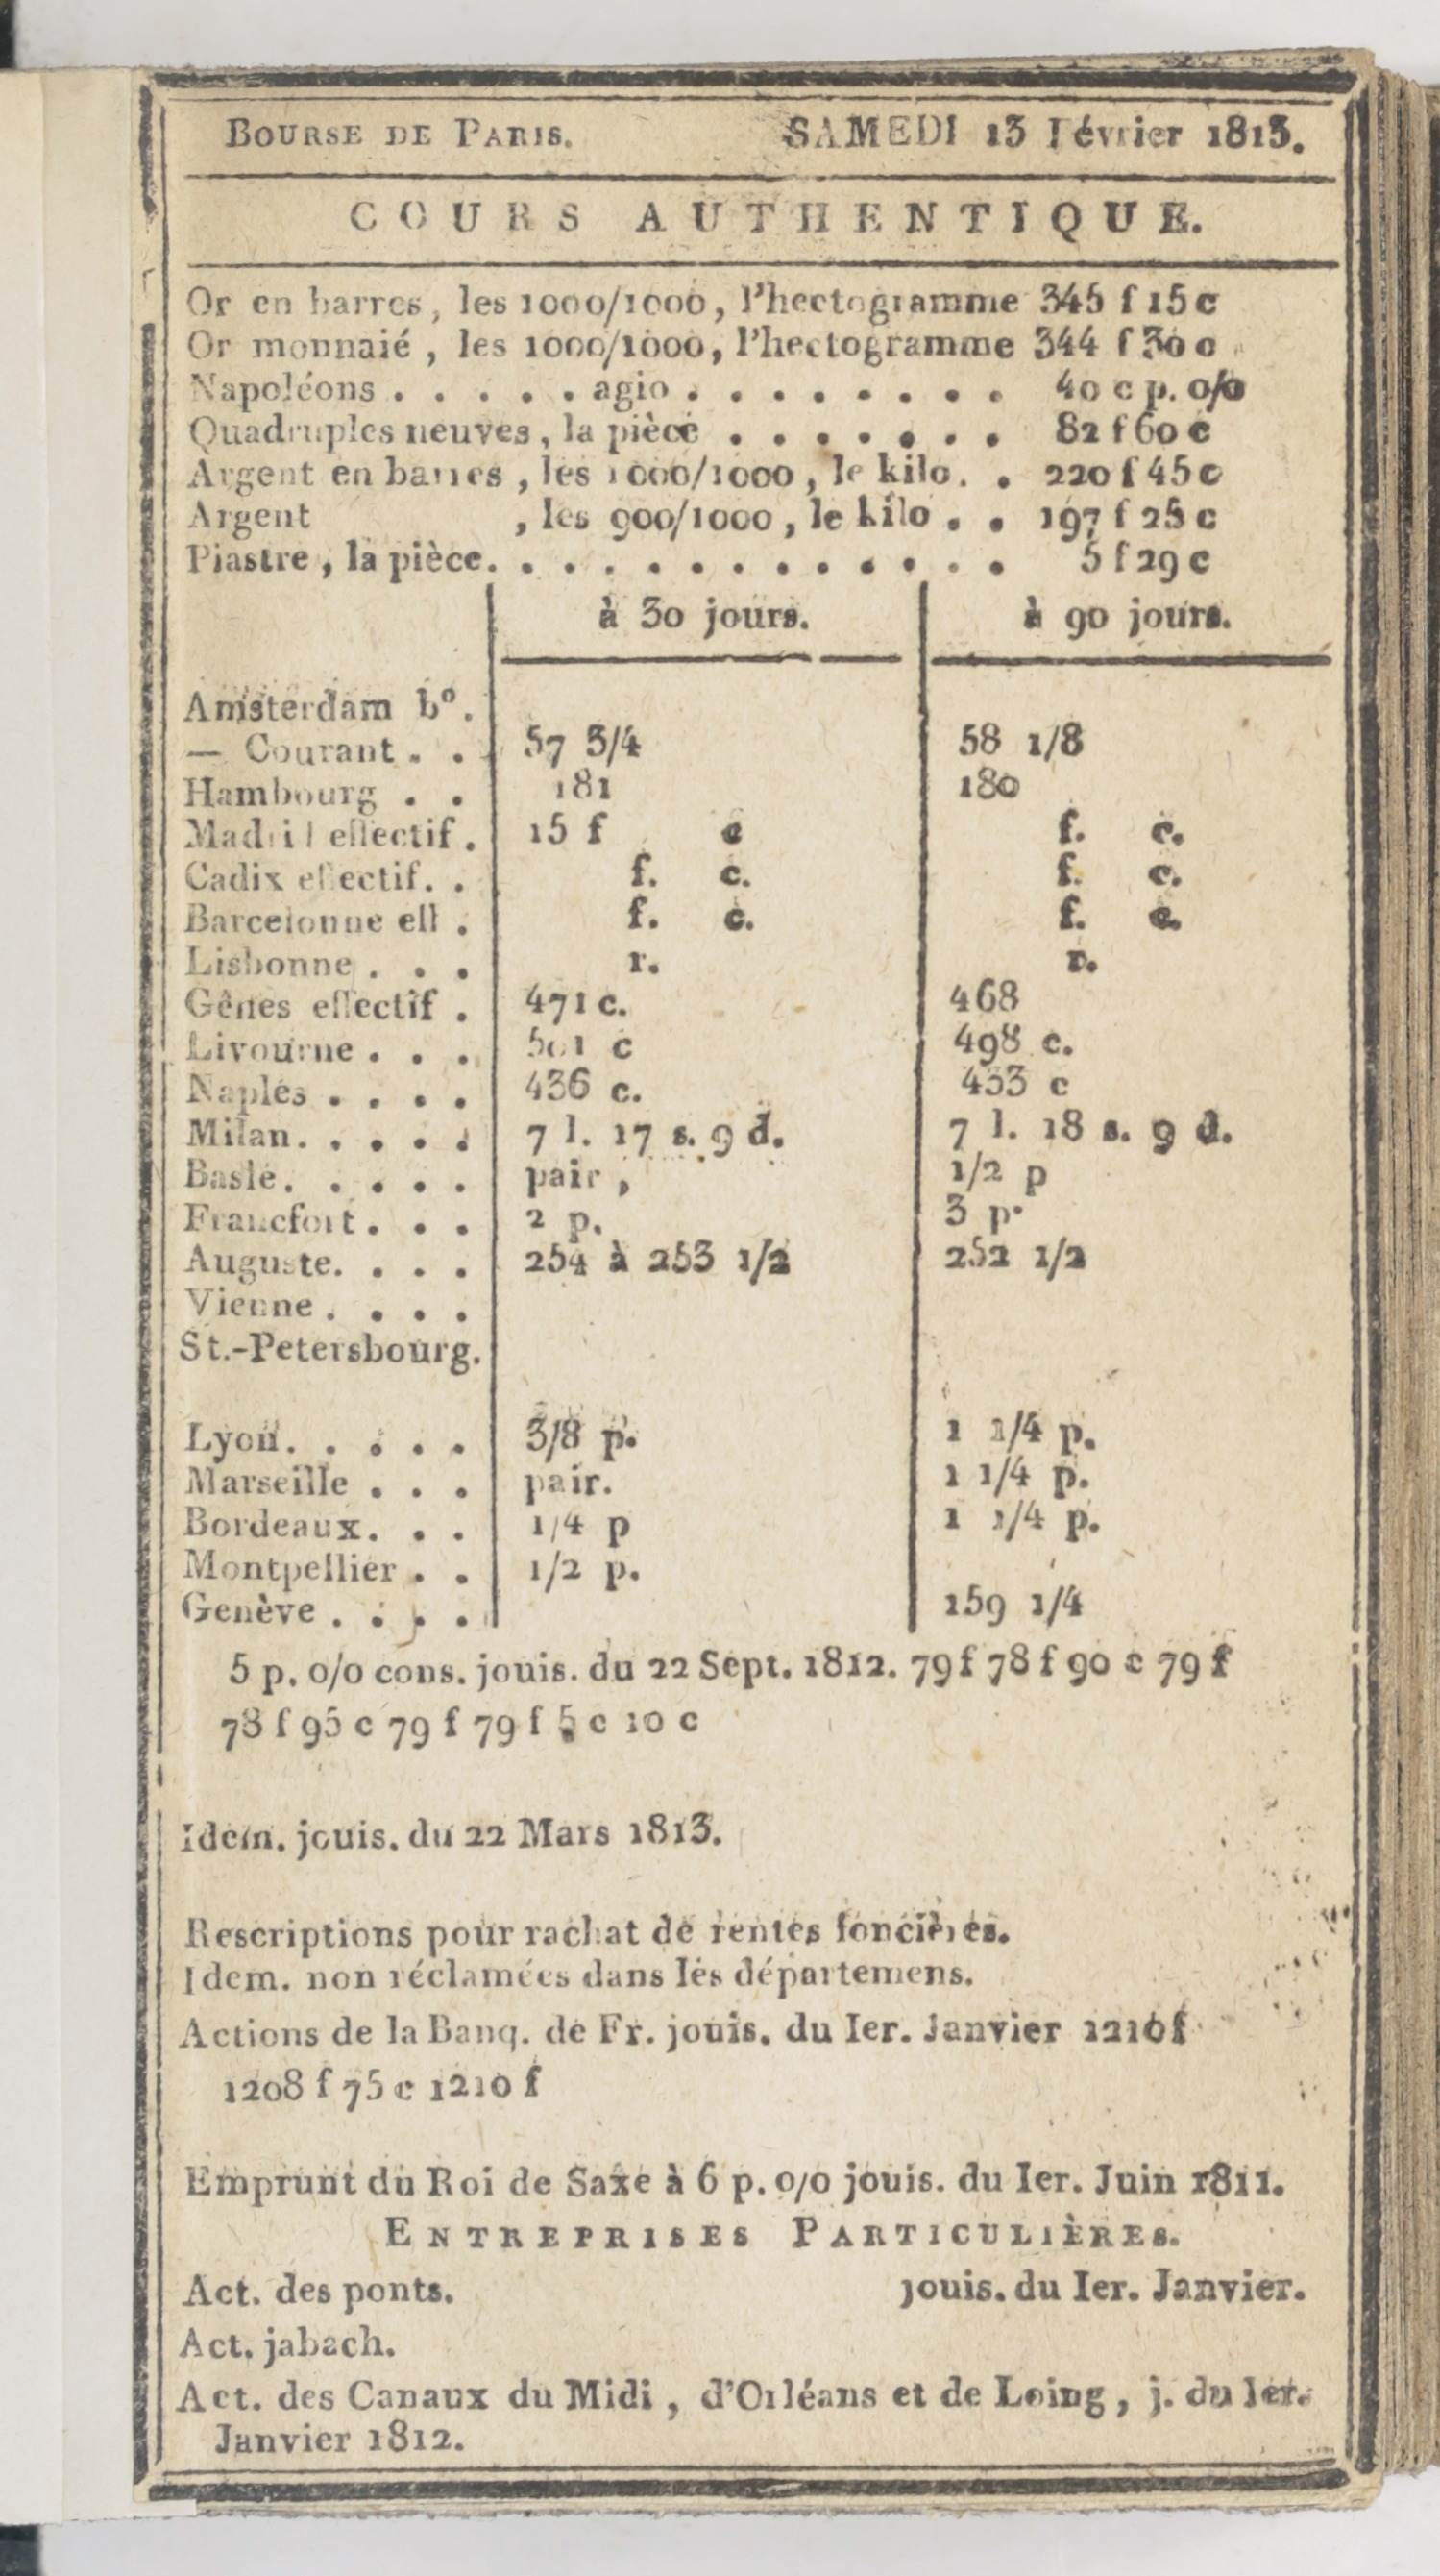 BOURSE DE PARIS. SAMEDI 13 Février 1813.
COURS AUTHENTIQUE.
Or en barres, les 1000/1000, l'hectogramme 345 f 15 c
Or monnaié, les 1000/1000, l'hectogramme 344 f 30 c
Napoléons . . . . . agio . . . . . . . . 40 c p. 0/0
Quadruples neuves, la pièce . . . . . . . 82 f 60 c
Argent en barres, les 1000/1000, le kilo. . 220 f 45 c
Argent , les 900/1000, le kilo . . 197 f 25 c
Piastre, la pièce. . . . . . . . . . . . . 5 f 29 c
à 30 jours. à 90 jours.
Amsterdam b°.
— Courant . . 57 3/4 58 1/8
Hambourg . . 181 180
Madrid effectif . 15 f c f. c.
Cadix effectif. . f. c. f. c.
Barcelonne eff . f. c. f. c.
Lisbonne . . . r. r.
Gênes effectif . 471 c. 468
Livourne . . . 501 c 498 c.
Naples . . . . 436 c. 433 c
Milan. . . . . 7 l. 17 s. 9 d. 7 l. 18 s. 9 d.
Basle. . . . . pair, 1/2 p
Francfort . . . 2 p. 3 p.
Auguste. . . . 254 à 253 1/2 252 1/2
Vienne . . . .
St.-Petersbourg.
Lyon. . . . . 3/8 p. 1 1/4 p.
Marseille . . . pair. 1 1/4 p.
Bordeaux. . . 1/4 p 1 1/4 p.
Montpellier . . 1/2 p.
Genève . . . . 159 1/4
5 p. 0/0 cons. jouis. du 22 Sept. 1812. 79 f 78 f 90 c 79 f
78 f 95 c 79 f 79 f 5 c 10 c
Idem. jouis. du 22 Mars 1813.
Rescriptions pour rachat de rentes foncières.
Idem. non réclamées dans les départemens.
Actions de la Banq. de Fr. jouis. du Ier. Janvier 1210 f
1208 f 75 c 1210 f
Emprunt du Roi de Saxe à 6 p. 0/0 jouis. du Ier. Juin 1811.
ENTREPRISES PARTICULIÈRES.
Act. des ponts. jouis. du Ier. Janvier.
Act. jabach.
Act. des Canaux du Midi, d'Orléans et de Loing, j. du Ier.
Janvier 1812.